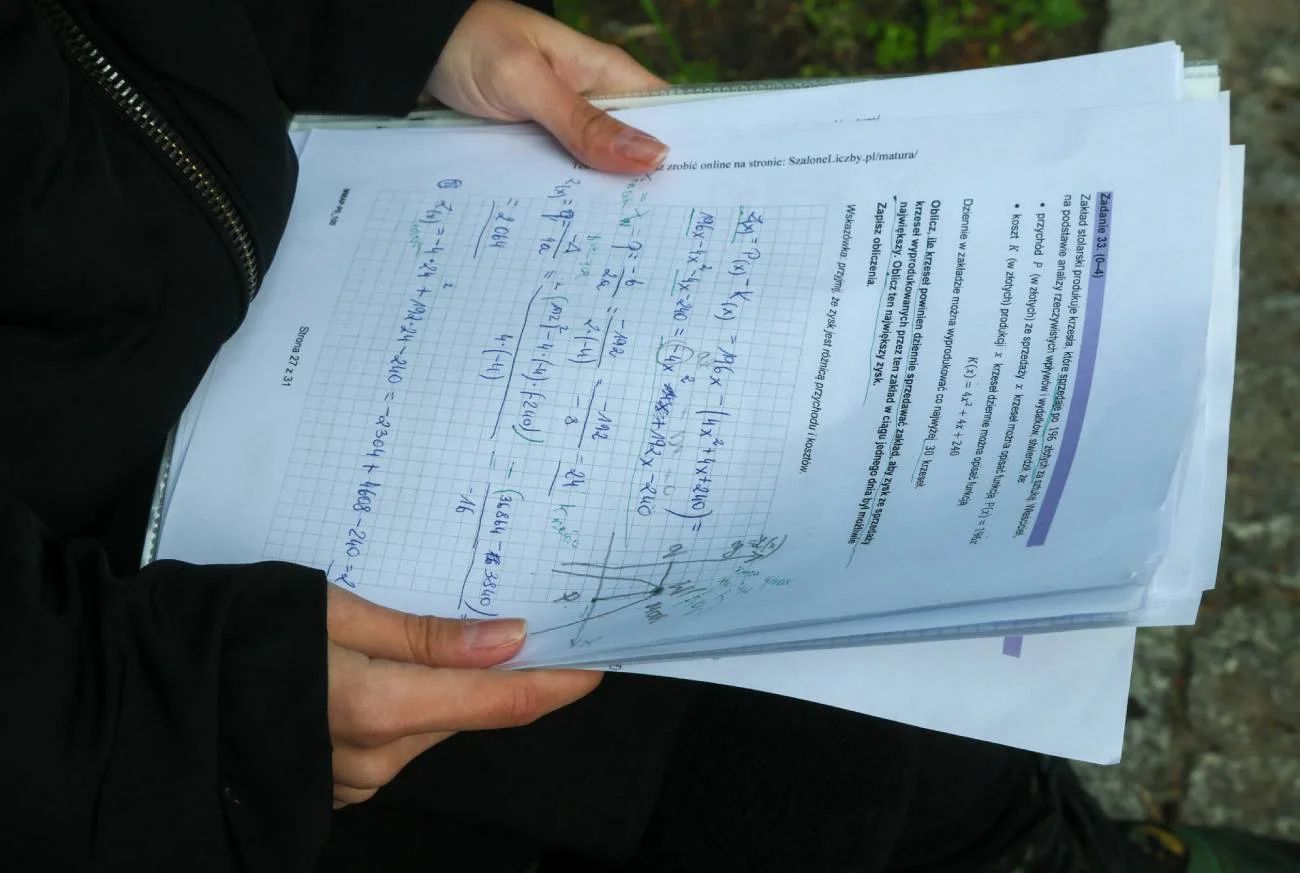 zrobić online na stronie: SzaloneLiczby.pl/matura/
Zadanie 33. (0–4)
Zakład stolarski produkuje krzesła, które sprzedaje po 196 złotych za sztukę. Właściciel,
na podstawie analizy rzeczywistych wpływów i wydatków, stwierdził, że:
• przychód P (w złotych) ze sprzedaży x krzeseł można opisać funkcją P(x) = 196x
• koszt K (w złotych) produkcji x krzeseł dziennie można opisać funkcją
K(x) = 4x² + 4x + 240
Dziennie w zakładzie można wyprodukować co najwyżej 30 krzeseł.
Oblicz, ile krzeseł powinien dziennie sprzedawać zakład, aby zysk ze sprzedaży
krzeseł wyprodukowanych przez ten zakład w ciągu jednego dnia był możliwie
największy. Oblicz ten największy zysk.
Zapisz obliczenia.
Wskazówka: przyjmij, że zysk jest różnicą przychodu i kosztów.
Z(x) = P(x) − K(x) = 196x − (4x² + 4x + 240) =
196x − 4x² − 4x − 240 = −4x² + 192x − 240
= p = −b/2a = −192/2·(−4) = −192/−8 = 24
Z(x) = q = −Δ/4a = −(192² − 4·(−4)·(−240))/4(−4) = −(36864 − 3840)/−16 =
= 2064
Z(x) = −4·24² + 192·24 − 240 = −2304 + 4608 − 240 =
Strona 27 z 31